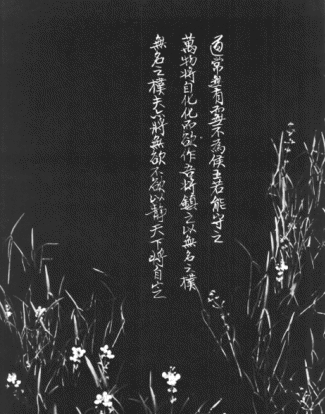 道常無為而無不為侯王若能守之
萬物將自化化而欲作吾將鎮之以無名之樸
無名之樸夫亦將無欲不欲以靜天下將自定